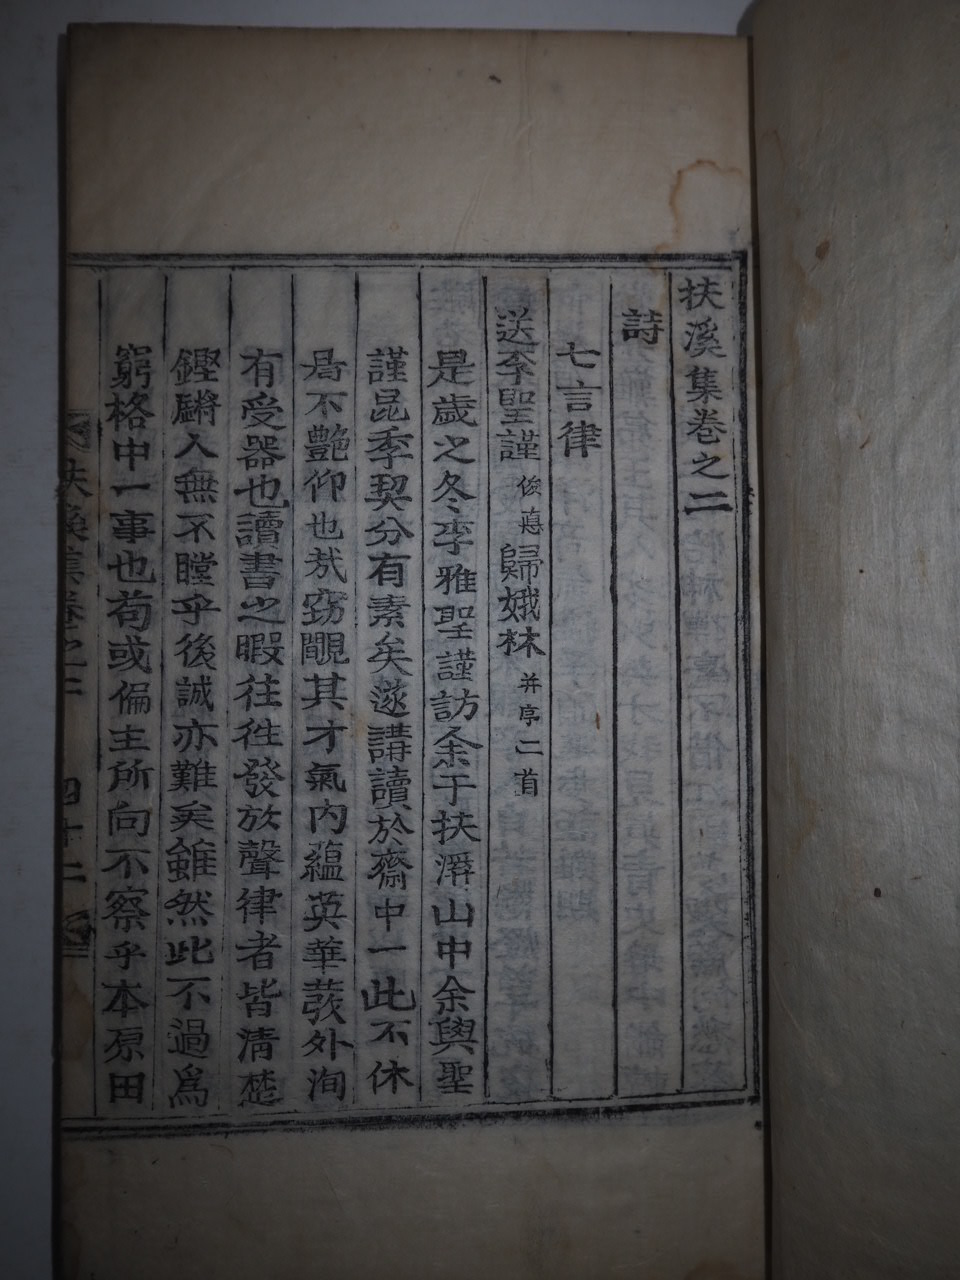 扶溪集卷之二
詩
七言律
送李聖謹俊蓋歸娥林并序二首
是歲之冬李雅聖謹訪余于扶溪山中余與聖
謹昆季契分有素矣遂講讀於齋中一此不休
曷不艶仰也哉窃覵其才氣內蘊英華發外洵
有受器也讀書之暇往徃發放聲律者皆清楚
鏗鏘人無不瞠乎後誠亦難矣雖然此不過爲
窮格中一事也苟或偏主所向不察乎本原田
扶溪集卷之二 四十二